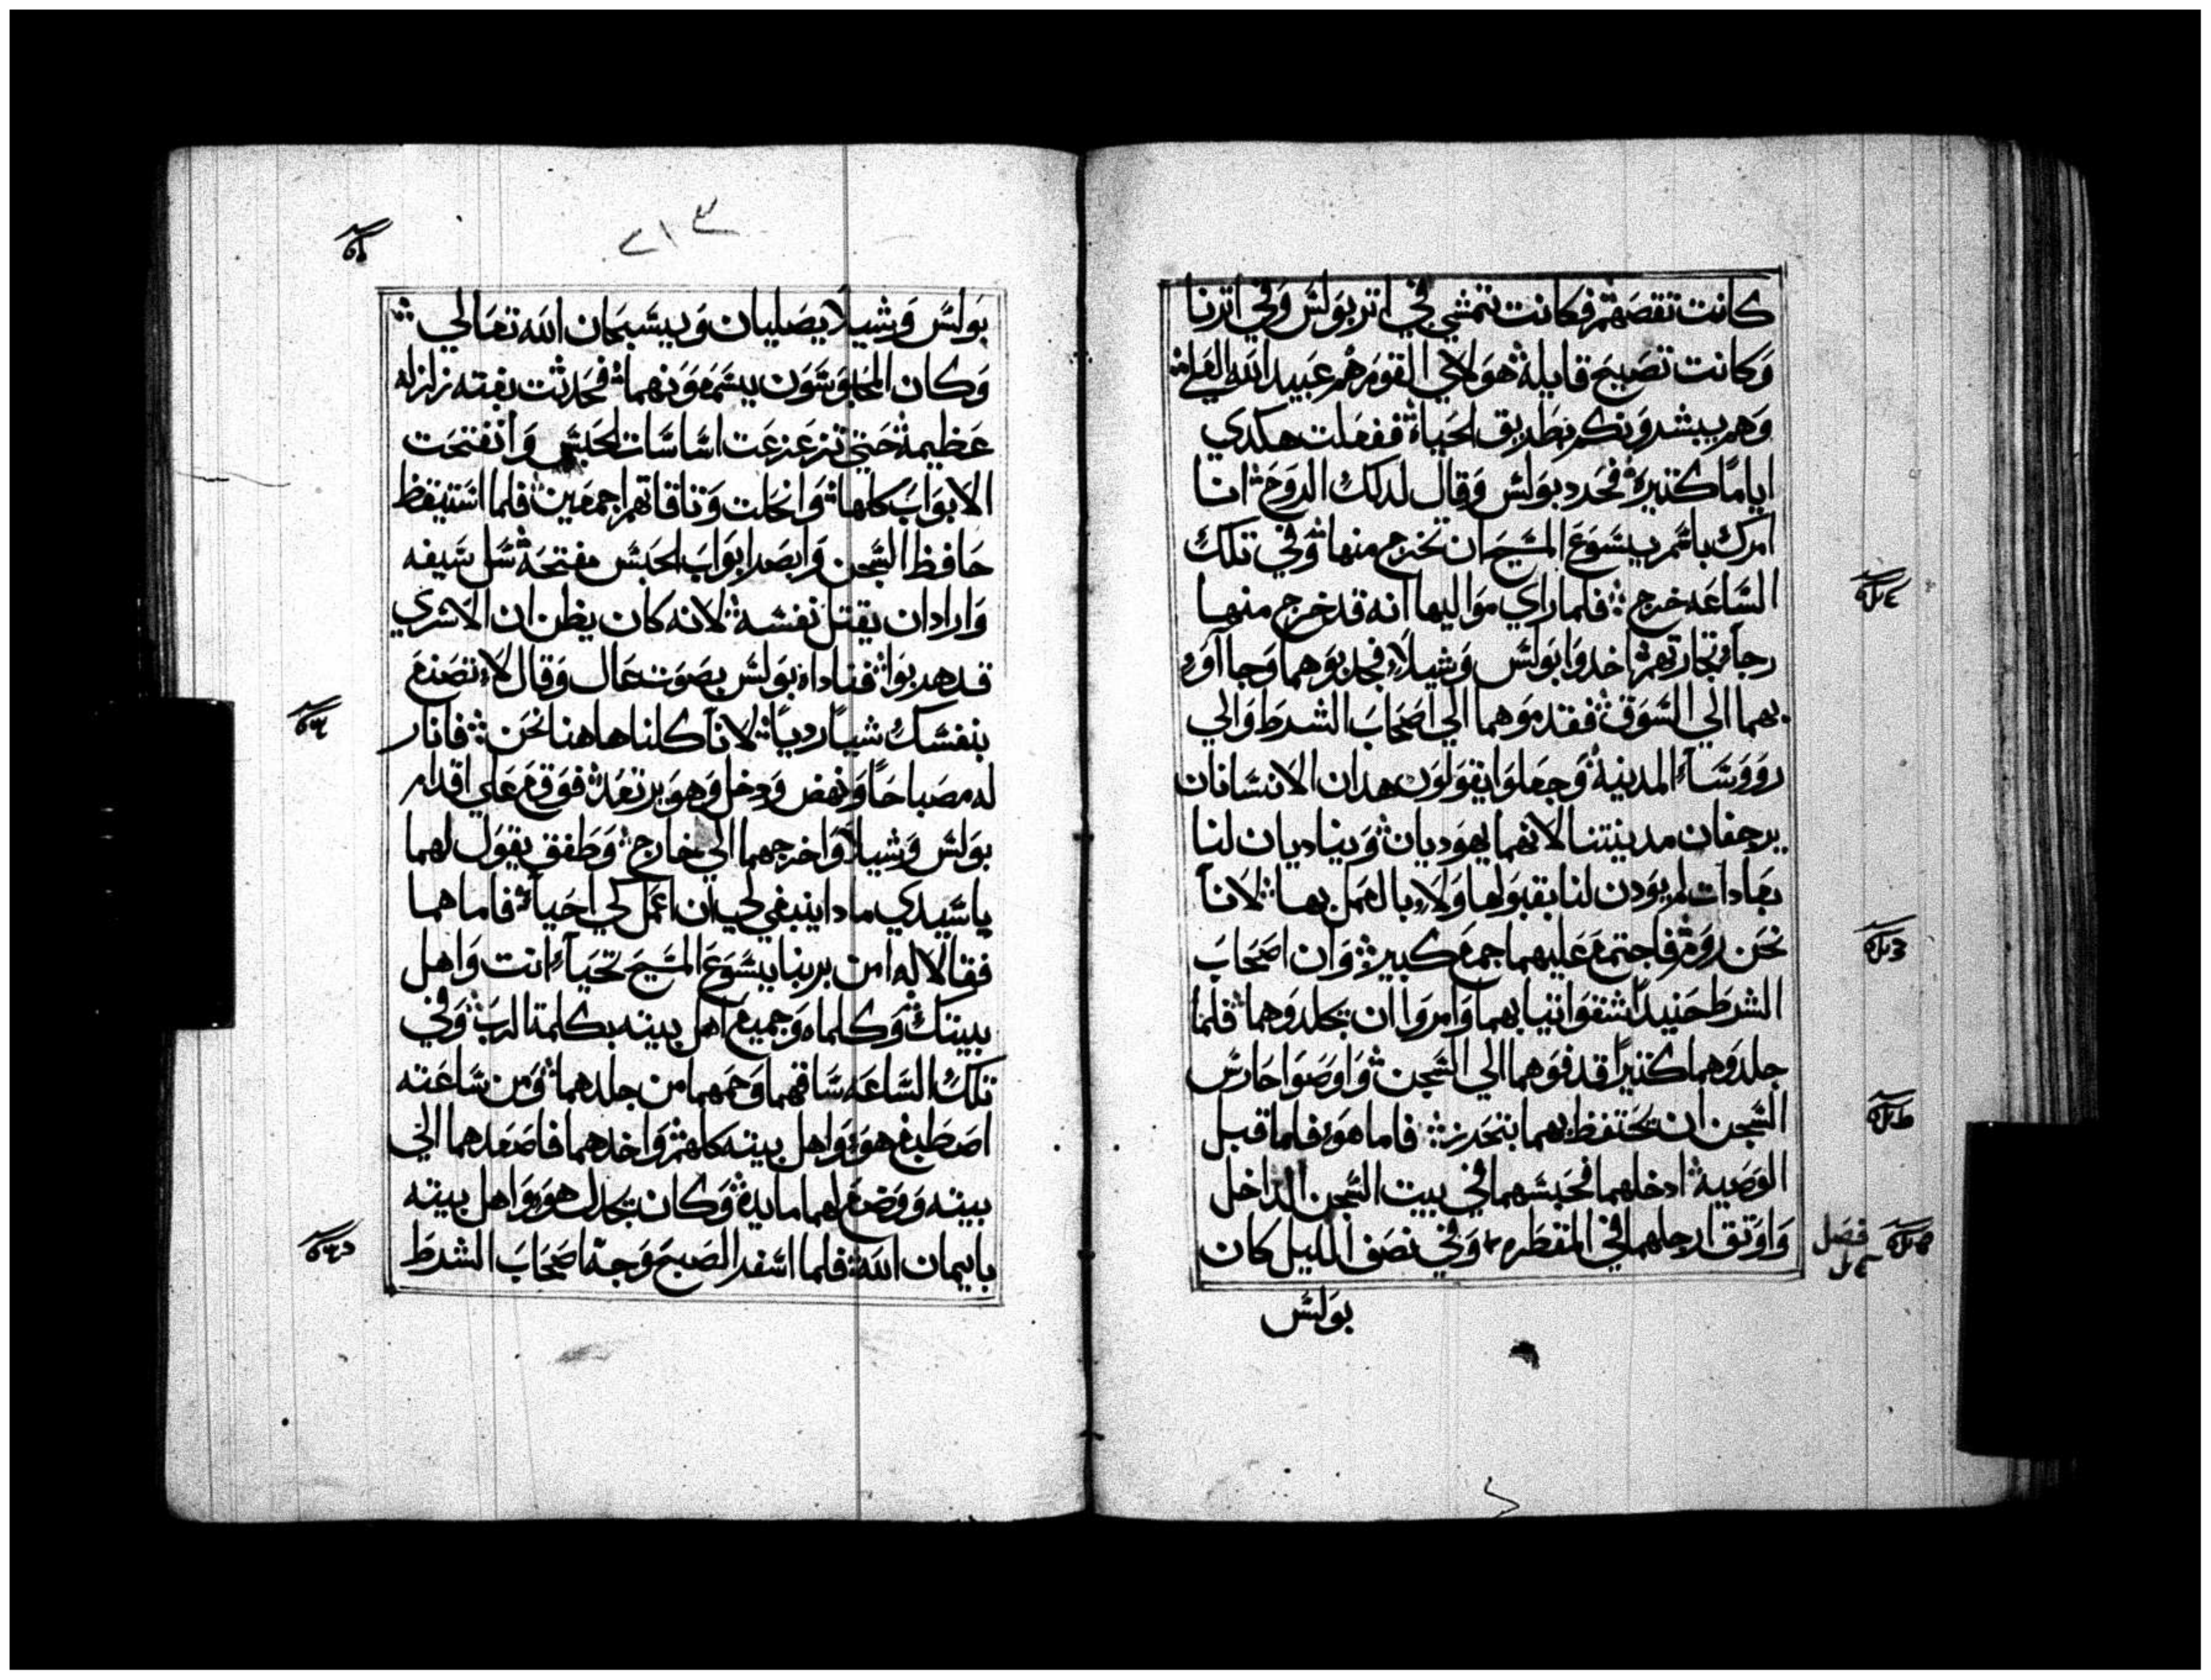 كانت تقصهم فكانت تتمشي في اتر بولس وفي اترنا
وكانت تصيح قايلة هولاي القوم هم عبيد الله العلي
وهم يبشرونكم بطريق الحياة ففعلت هكدي
اياما كتيرة فحرد بولس وقال لدلك الروح انا
امرك باسم يسوع المسيح ان تخرج منها وفي تلك
الساعه خرج فلما راي مواليها انه قد خرج منها
رجاء تجارتهم اخدوا بولس وشيلا فجدبوهما وجااوو
بهما الي السوق فقدموهما الي اصحاب الشرط والي
روؤساء المدينة وجعلوا يقولون هدان الانسانان
يرجفان مدينتنا لانهما يهوديان ويناديان لنا
بعادات لم يودن لنا بقبولها ولا بالعمل بها لانا
نحن روم فاجتمع عليهما جمع كبير وان اصحاب
الشرط حنيدا شقوا تيابهما وامروا ان يجلدوهما فلما
جلدوهما كتيرا قدفوهما الي السجن واوصوا حارس
السجن ان يحتفظ بهما بتحرز فاما هو فلما قبل
الوصية ادخلهما فحبسهما في بيت السجن الداخل
واوتق ارجلهما في المقطره وفي نصف الليل كان
فصل
بولس
٢١٣
بولس وشيلا يصليان ويسبحان الله تعالي
وكان المحبوسون يسمعونهما فحدثت بغته زلزله
عظيمة حتي تزعزعت اساسات الحبس وانفتحت
الابواب كلها وانحلت وتاقاتهم اجمعين فلما استيقظ
حافظ السجن وابصر ابواب الحبس مفتحة سل سيفه
واراد ان يقتل نفسه لانه كان يظن ان الاسري
قد هربوا فناداه بولس بصوت عال وقال لا تصنع
بنفسك شيا رديا لانا كلنا هاهنا نحن فانار
له مصباحا ونهض ودخل وهو يرتعد فوقع علي اقدام
بولس وشيلا واخرجهما الي خارج وطفق يقول لهما
ياسيدي مادا ينبغي لي ان اعمل لكي احيا فاما هما
فقالا له امن بربنا يسوع المسيح تحيا انت واهل
بيتك وكلماه وجميع اهل بيته بكلمة الرب وفي
تلك الساعه ساقهما وحمهما من جلدهما ومن ساعته
اصطبغ هو واهل بيته كلهم واخدهما فاصعدهما الي
بيته ووضع لهما مايدة وكان يجدل هو واهل بيته
بايمان الله فلما اسفر الصبح وجه اصحاب الشرط